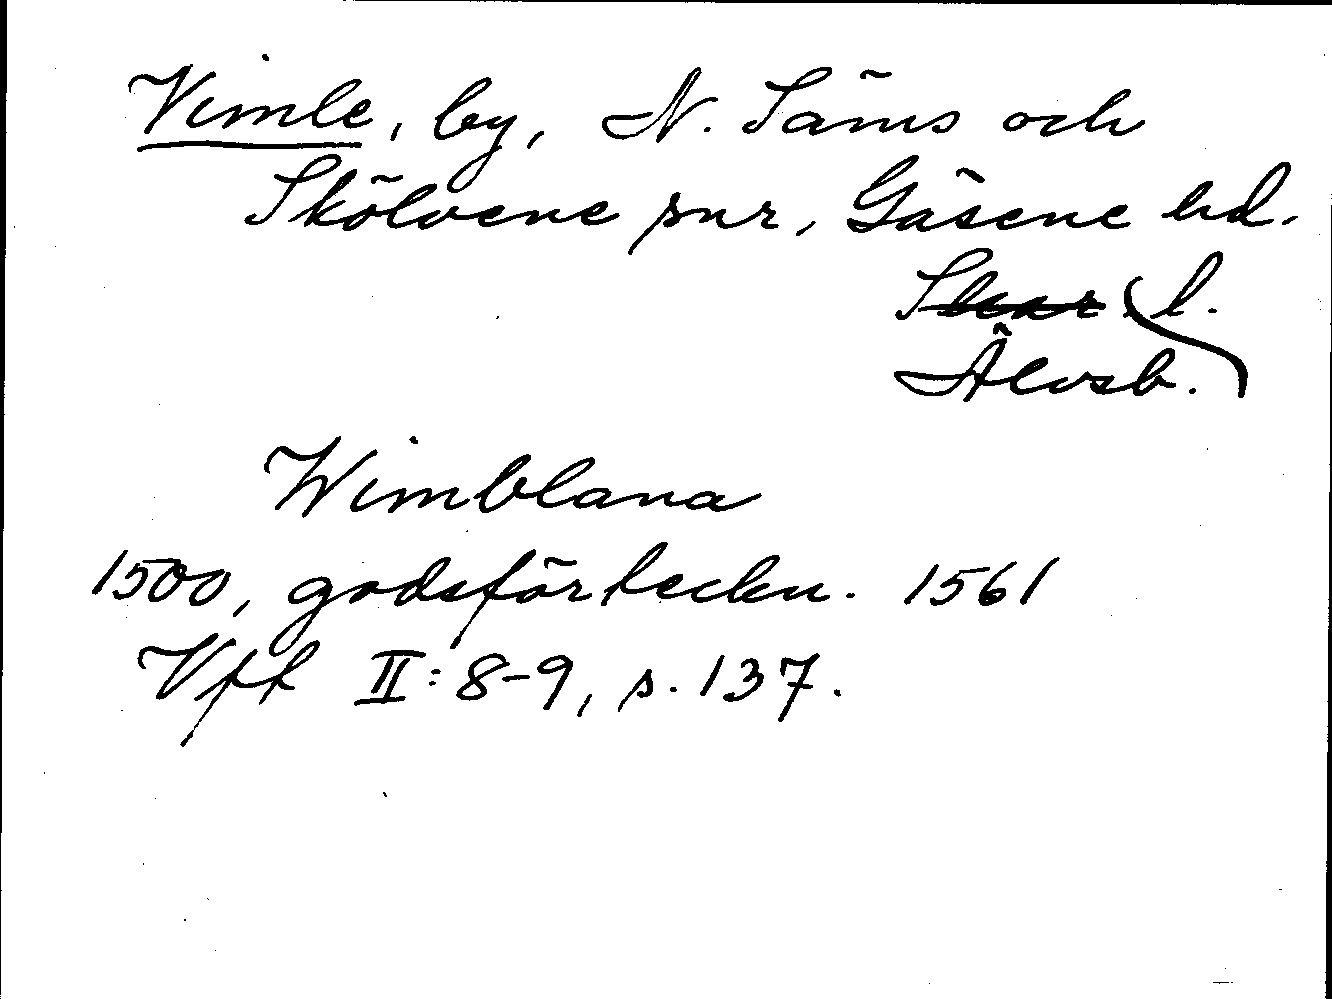 Vimle, by, N. Säms och
Skölvene snr, Gäsene hd.
Skar l.
Älvsb.
Wimblana
1500, godsförteckn. 1561
Vft II: 8-9, s. 137.